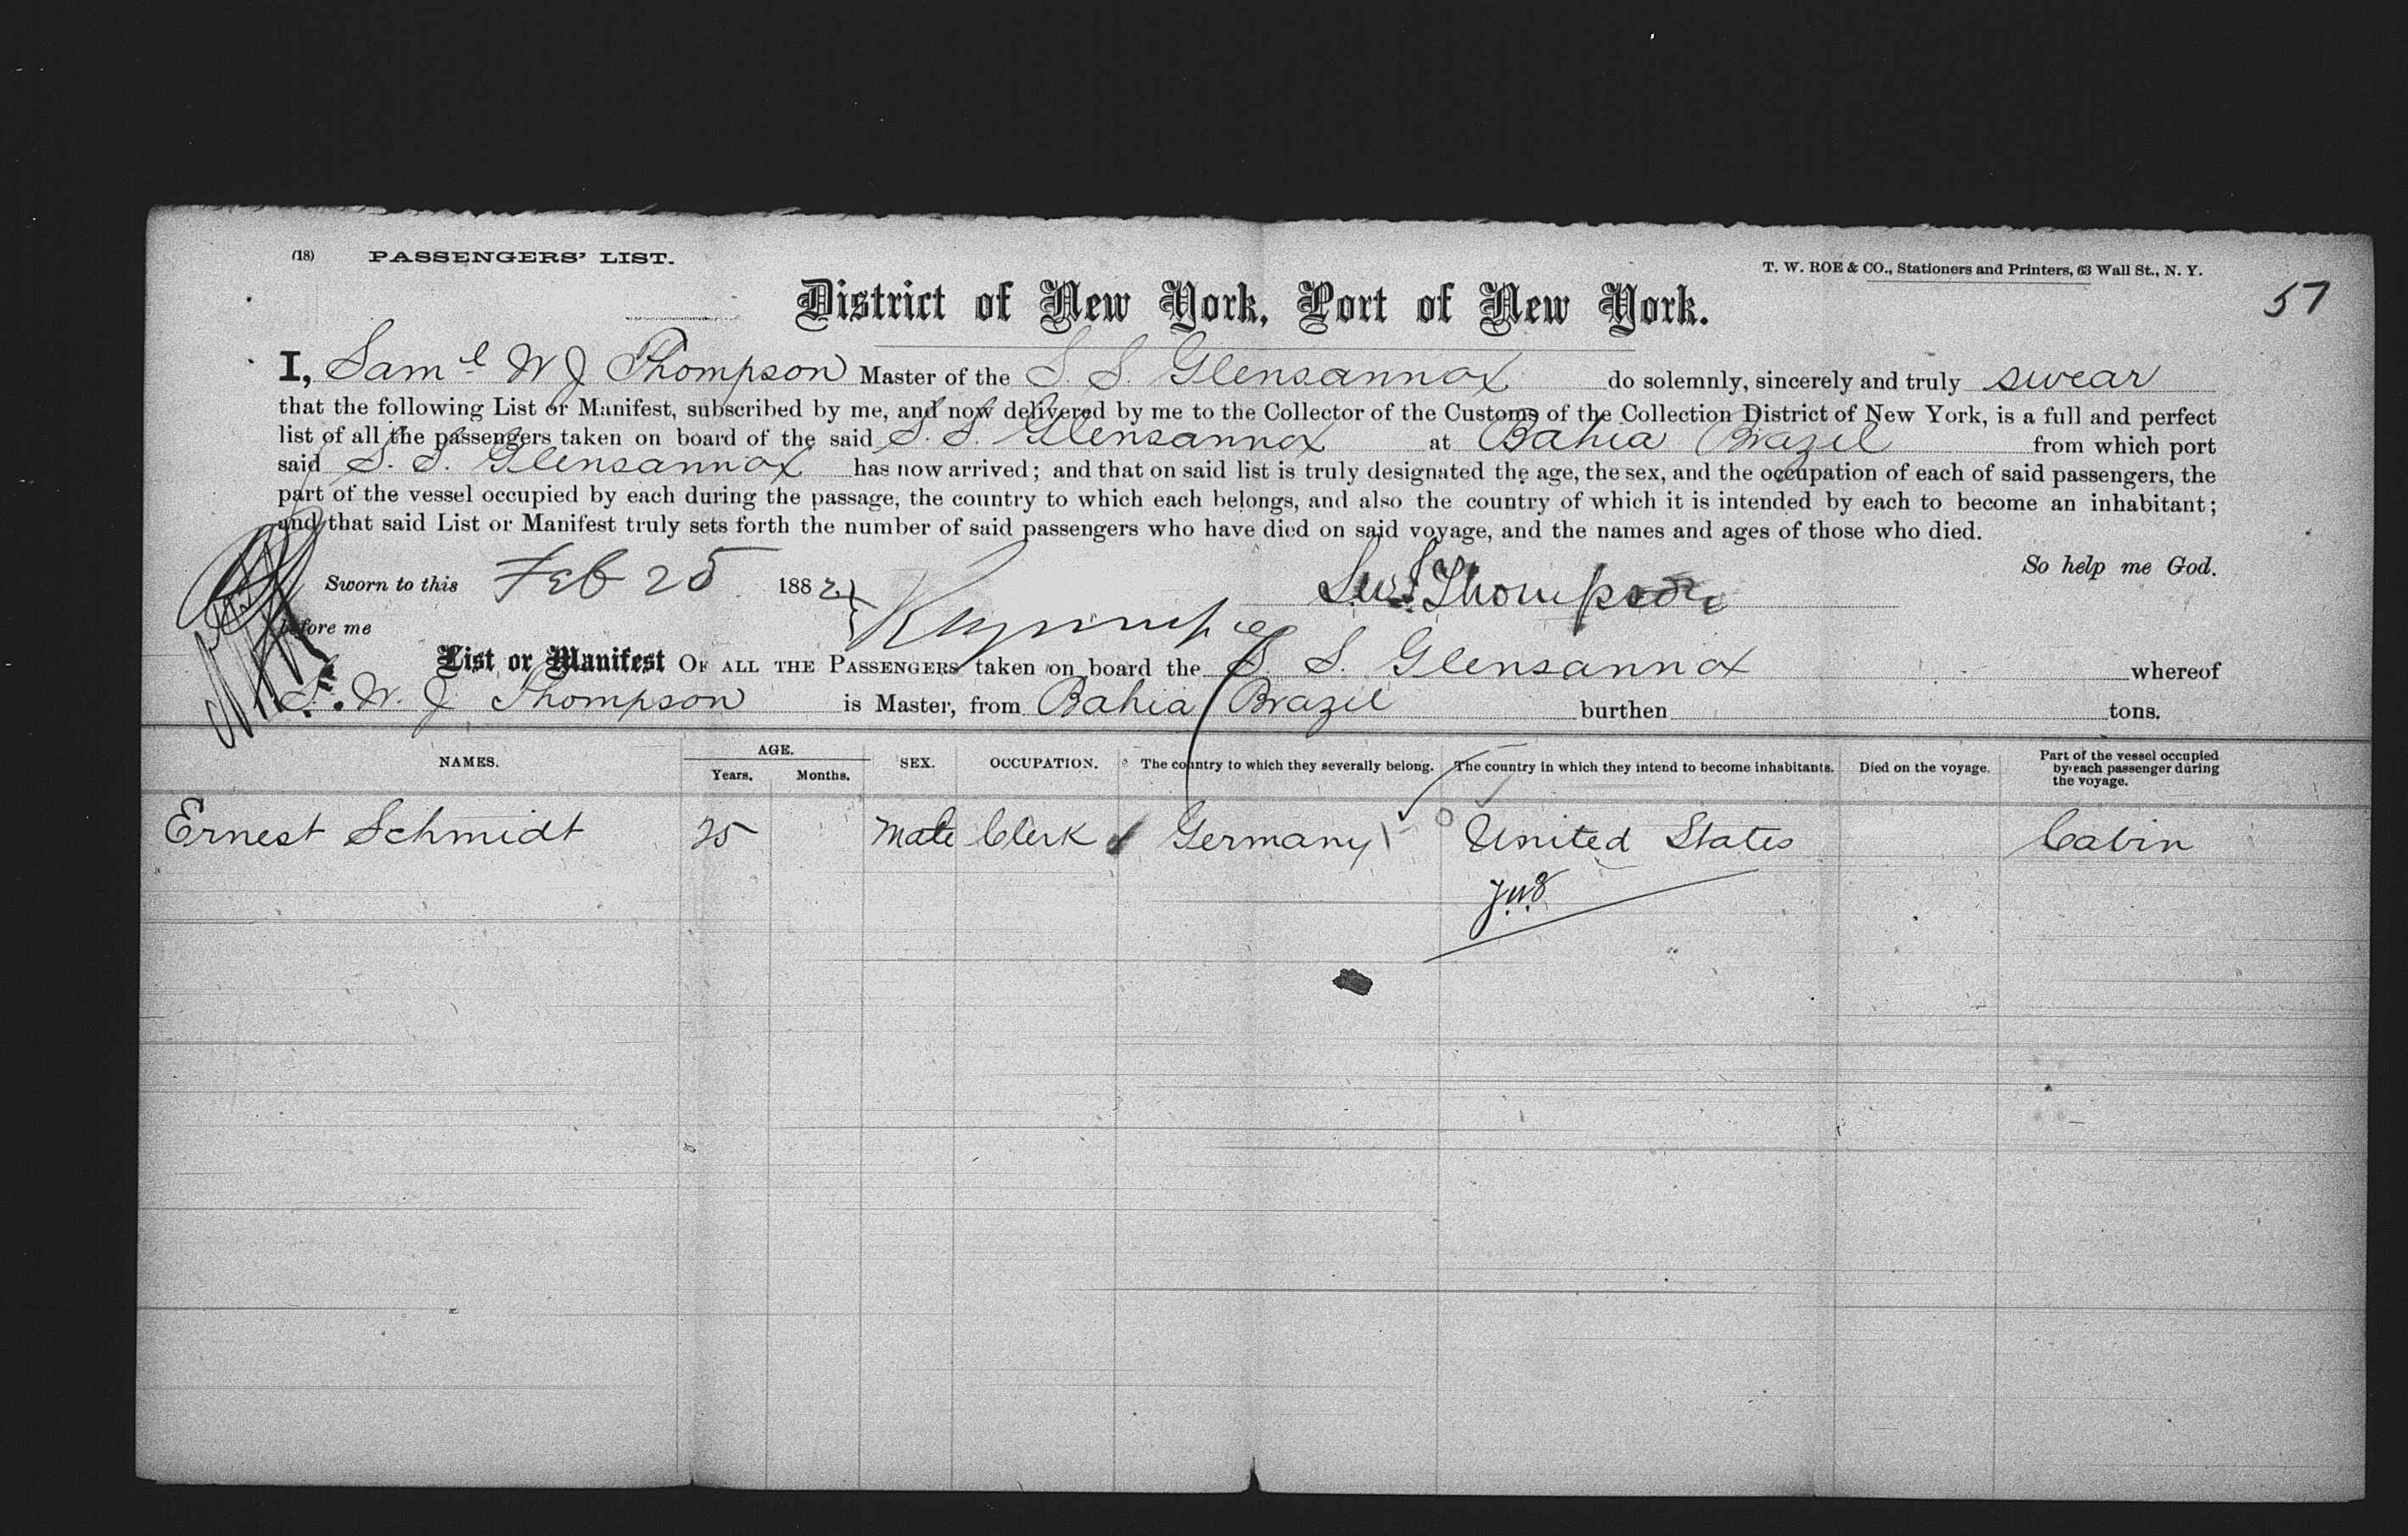 (18) PASSENGERS' LIST.
T. W. ROE & CO., Stationers and Printers, 63 Wall St., N. Y.
57
District of New York, Port of New York.
I, Saml W J Thompson Master of the S. S. Glensannox do solemnly, sincerely and truly swear
that the following List or Manifest, subscribed by me, and now delivered by me to the Collector of the Customs of the Collection District of New York, is a full and perfect
list of all the passengers taken on board of the said S. S. Glensannox at Bahia Brazil from which port
said S. S. Glensannox has now arrived; and that on said list is truly designated the age, the sex, and the occupation of each of said passengers, the
part of the vessel occupied by each during the passage, the country to which each belongs, and also the country of which it is intended by each to become an inhabitant;
and that said List or Manifest truly sets forth the number of said passengers who have died on said voyage, and the names and ages of those who died.
So help me God.
Sworn to this Feb 25 1882 Thompson
before me
List or Manifest OF ALL THE PASSENGERS taken on board the S. S. Glensannox whereof
S. W. J. Thompson is Master, from Bahia Brazil burthen tons.
NAMES. AGE. Years. Months. SEX. OCCUPATION. The country to which they severally belong. The country in which they intend to become inhabitants. Died on the voyage. Part of the vessel occupied by each passenger during the voyage.
Ernest Schmidt 25 Male Clerk Germany United States Cabin